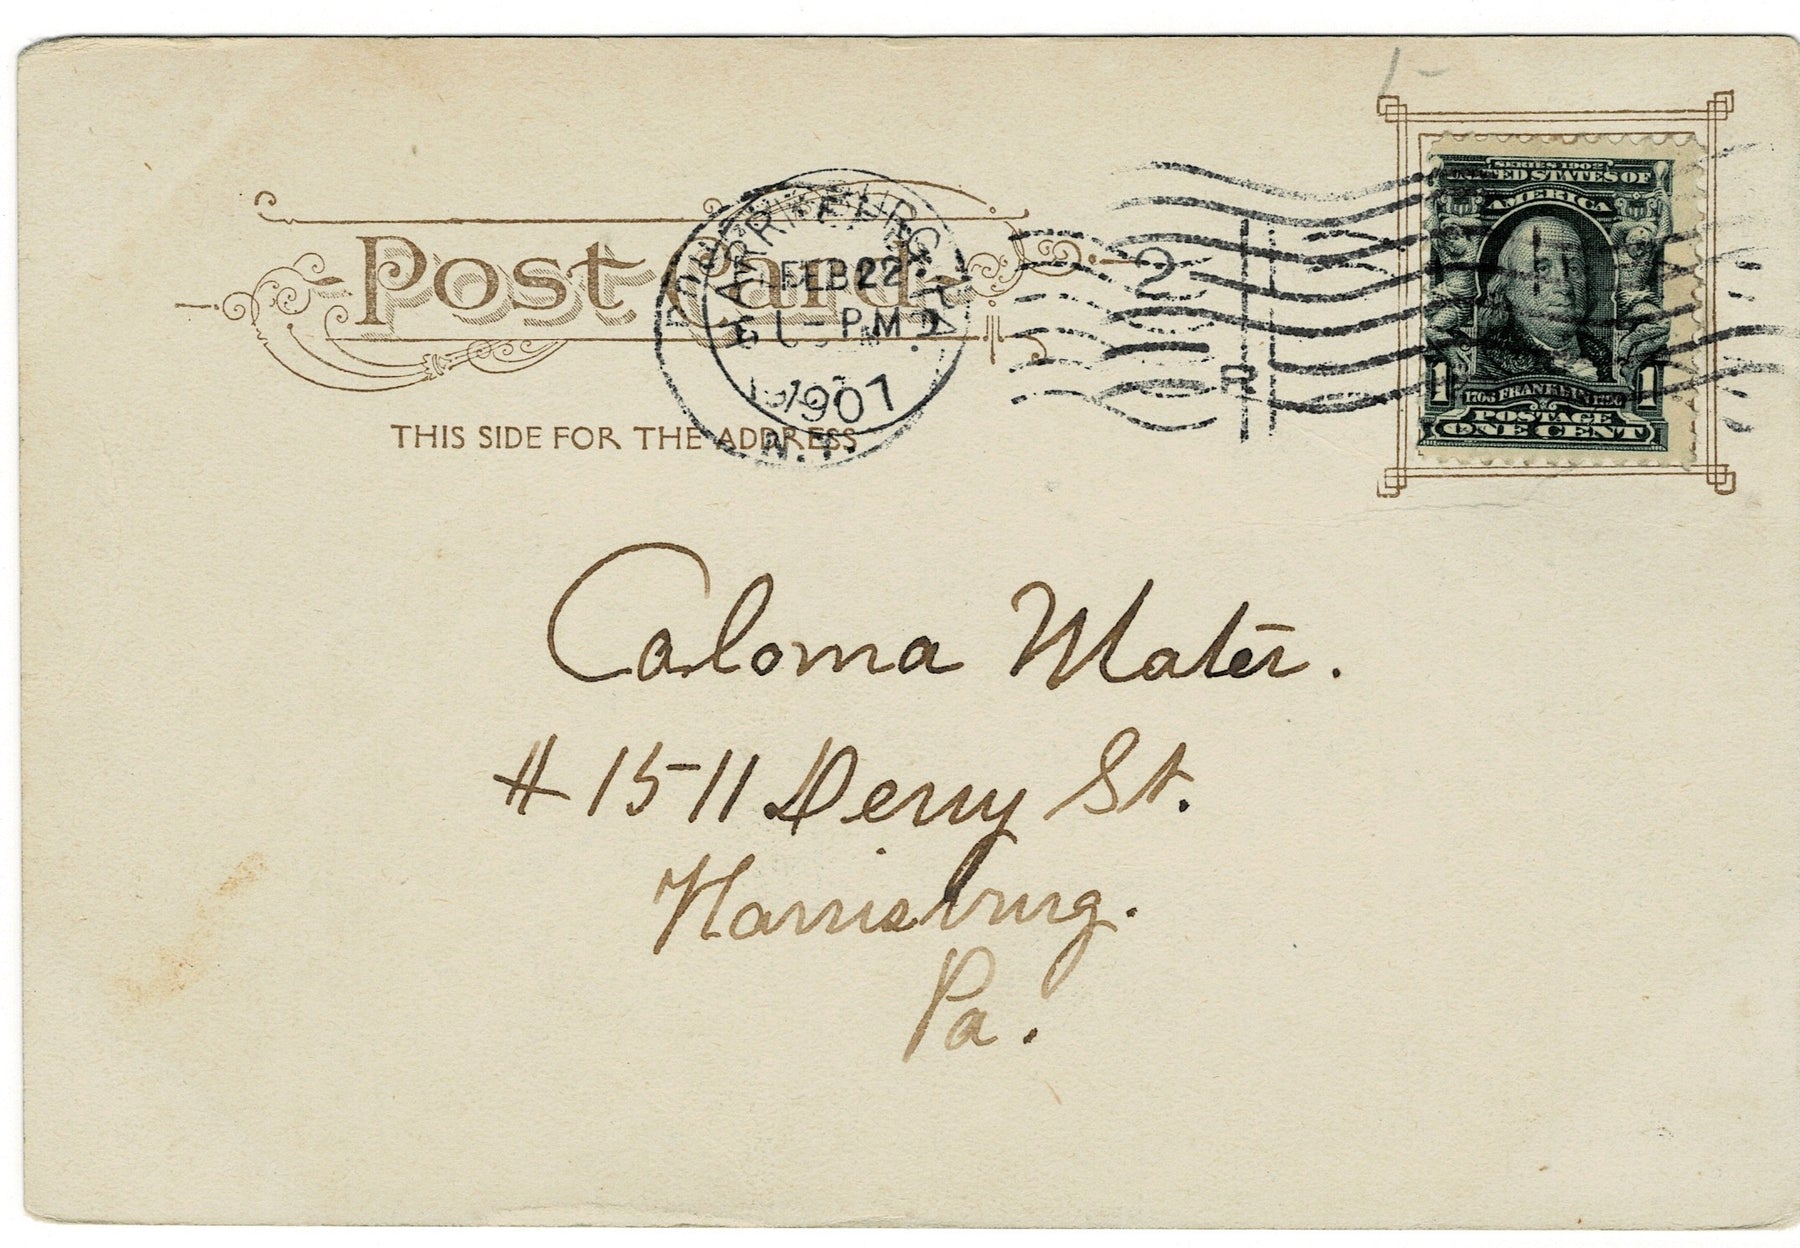 Post Card
THIS SIDE FOR THE ADDRESS
FEB 22
PM
1907
N.Y.
2
R
SERIES 1902
UNITED STATES OF
AMERICA
1 1706 FRANKLIN 1790 1
POSTAGE
ONE CENT
Caloma Mater.
# 1511 Derry St.
Harrisburg.
Pa.